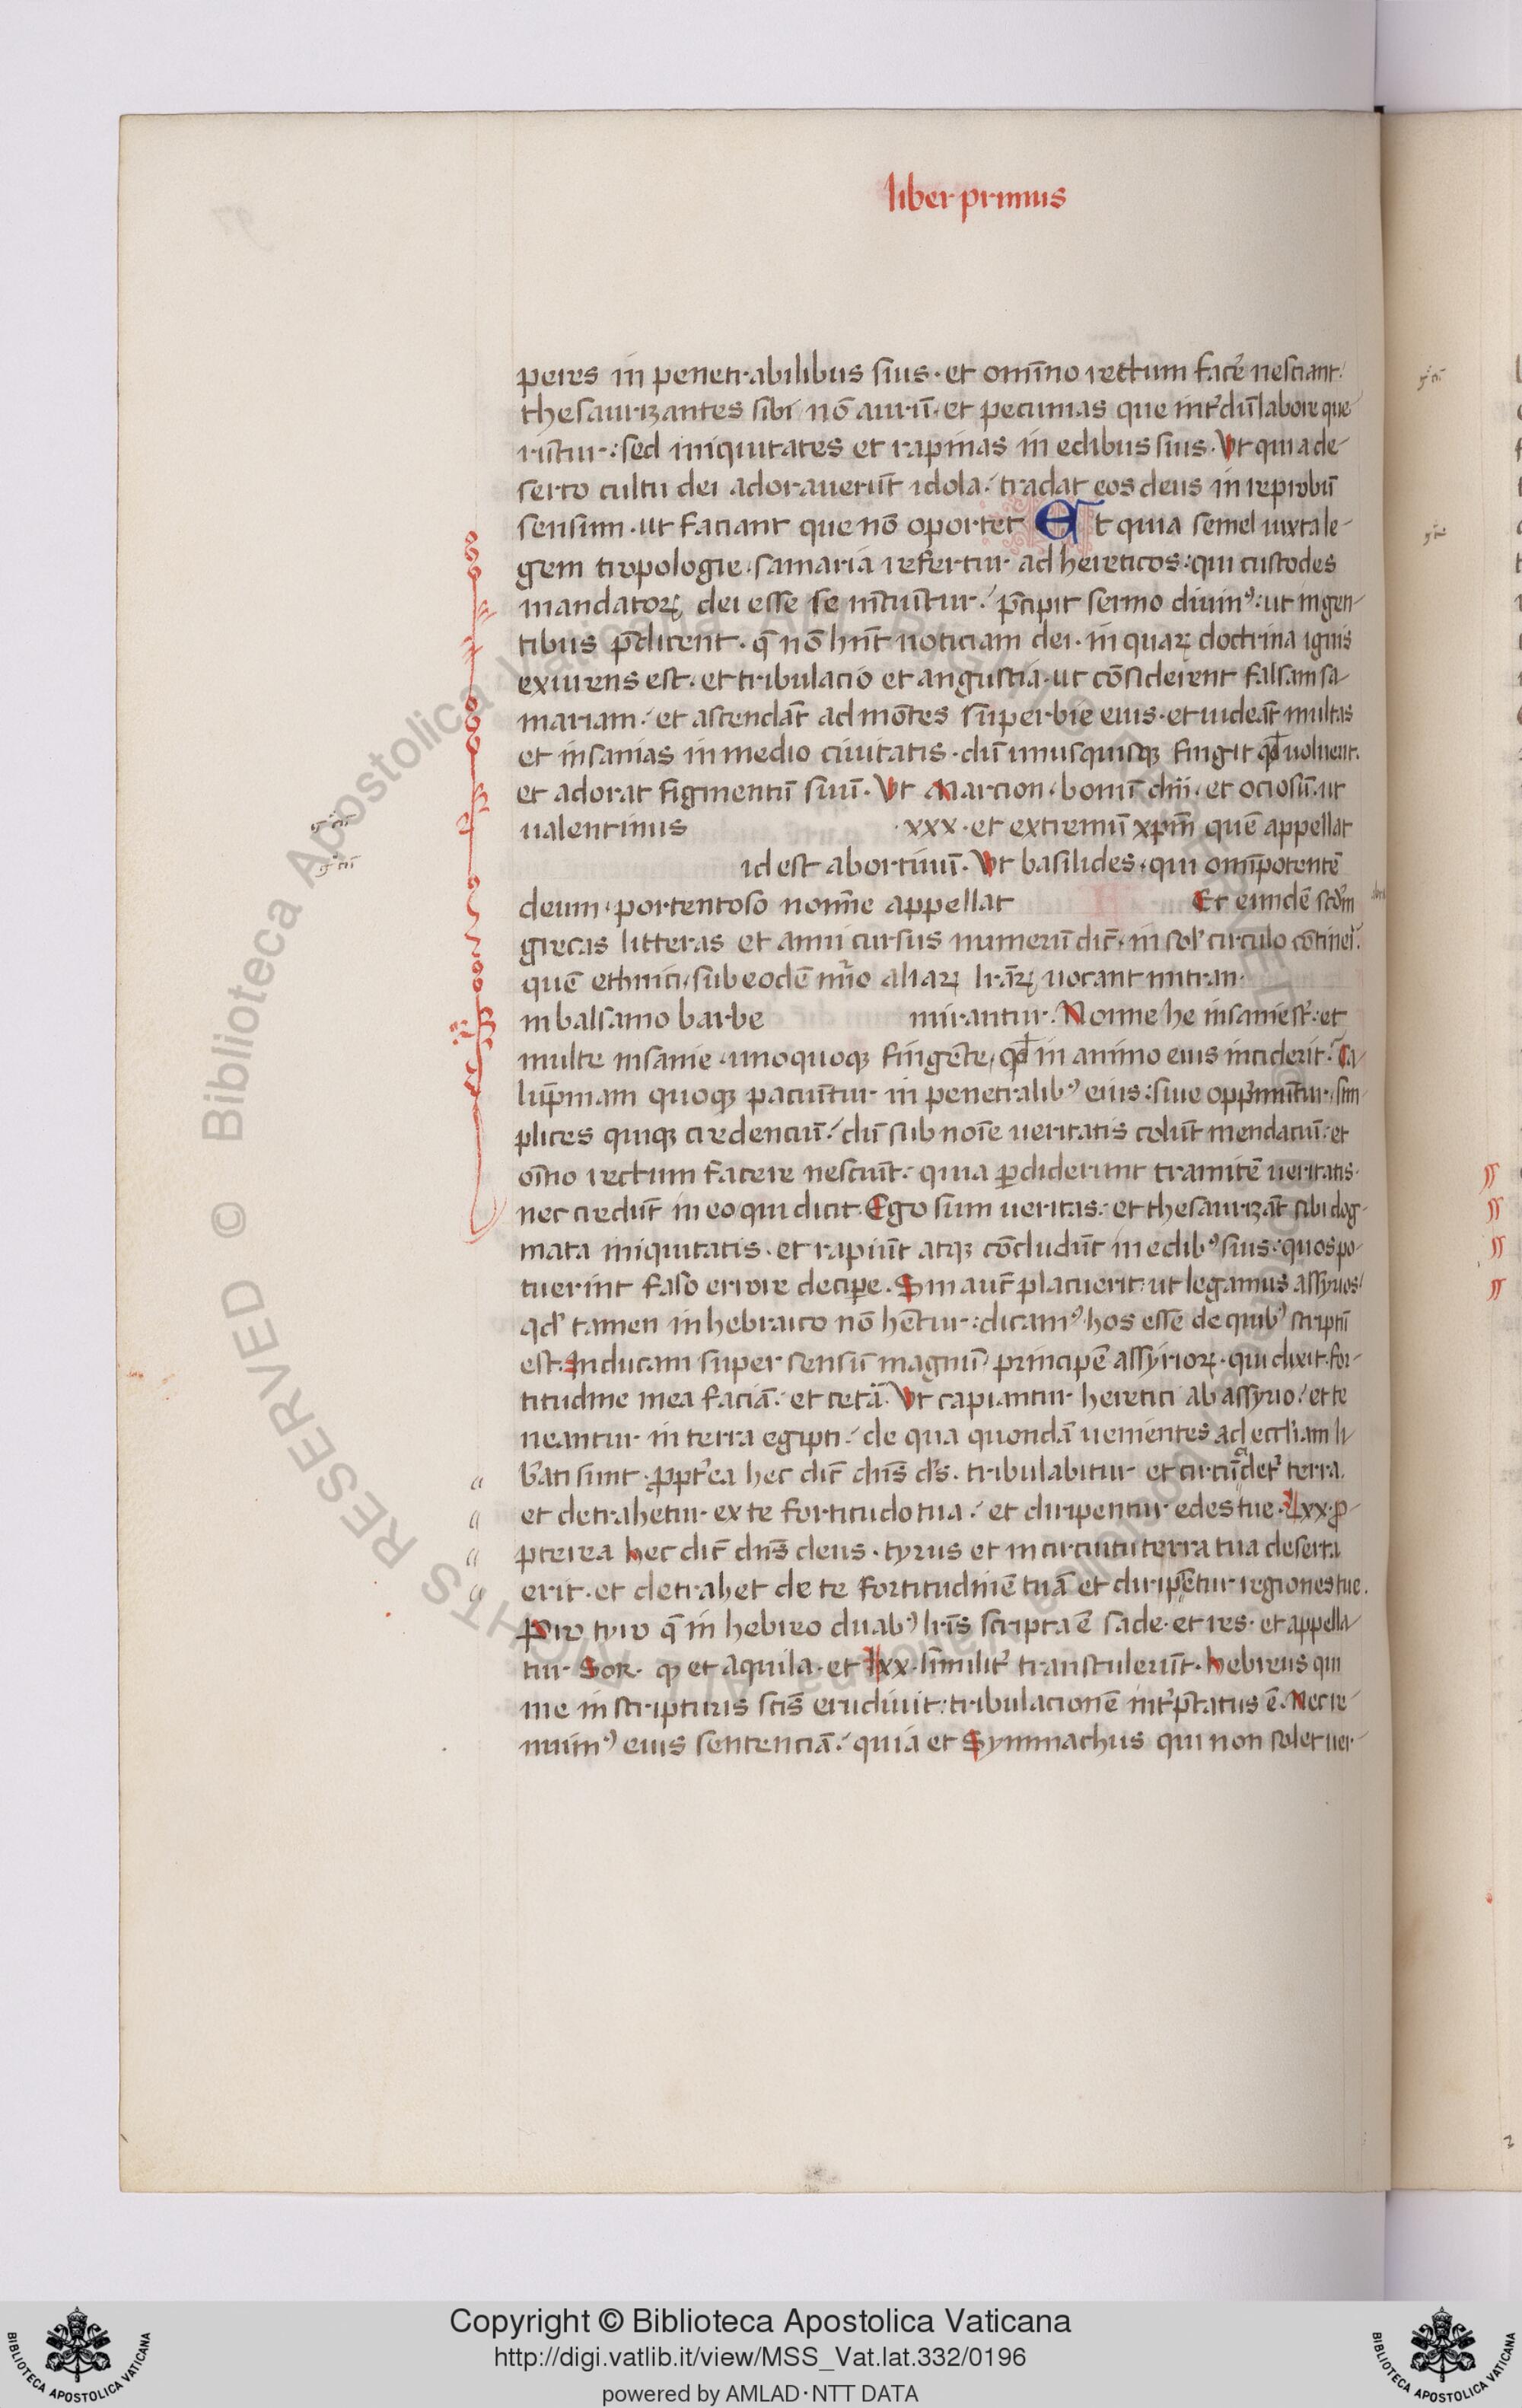 liber primus
peres in penetrabilibus suis · et omīno rectum facẽ nesciant:
thesaurizantes sibi nō aurū · et pecunias que intͬdū labore que
rūtur : sed iniquitates et rapinas in edibus suis · Vt qui a de-
serto cultu dei adorauerūt idola / tradat eos deus in reprobū
sensum · ut faciant que nō oportet Et quia semel iuxta le-
gem tropologie · samaria refertur ad hereticos : qui custodes
mandatoꝝ dei esse se mētiūtur / p̄cipit sermo diuinꝰ : ut in gen-
tibus p̄dicent · q̄ nō hn̄t noticiam dei · in quaꝝ doctrina ignis
exurens est · et tribulacio et angustia · ut cōsiderent falsam sa-
mariam / et ascendāt ad mōtes superbie eius · et uideāt multas
et insanias in medio ciuitatis · dū unusquisqꝫ fingit qđ uoluerit ·
et adorat figmentū suū · Vt Marcion · bonū dn̄i · et ociosū · ut
ualentinus · xxx · et extremū xpm̄ quē appellat
id est abortiuū · Vt basilides · qui omīpotentē
deum · portentoso nomīe appellat Et eundē scđm
grecas litteras et anni cursus numerū dic̄t · in sol' circulo cōtineri ·
quē ethnici / sub eodē nūo aliaꝝ lr̄aꝝ uocant mitran ·
in balsamo barbe mirantur · Nonne he insanie st̄ : et
multe insanie · unoquoqꝫ fingēte / qđ in animo eius inciderit · Ca-
lūpniam quoqꝫ paciūtur in penetralibꝰ eius : siue opp̄mūtur / sim-
plices quiqꝫ credenciū / dū sub noīe ueritatis colūt mendaciū : et
oīno rectum facere nesciūt : quia ꝑdiderunt tramitē ueritatis ·
nec credūt in eo qui dicit · Ego sum ueritas : et thesaurizāt sibi dog-
mata iniquitatis · et rapiūt atqꝫ cōcludūt in edibꝰ suis : quos po-
tuerint falso errore deciꝑe · Sin aut̄ placuerit : ut legamus assyrios /
qđ tamen in hebraico nō hētur : dicamꝰ hos esse de quibꝰ scriptū
est · Inducam super sensū magnū principē assyrioꝝ · qui dixit · for-
titudine mea faciā : et cetā · Vt capiantur heretici ab assyrio / et te
neantur in terra egipti / de qua quondā uenientes ad eccl'iam li-
b̄ati sunt · ꝓpt̄ea hec dic̄t dn̄s d's · tribulabitur et circūdet' terra ·
et detrahetur ex te fortitudo tua / et diripentur edes tue · Lxx · ꝓ-
pterea hec dic̄t dn̄s deus · tyrus et in circuitu terra tua deserta
erit · et detrahet de te fortitudinē tuā et diripētur regiones tue ·
Pro tyro q̄ in hebreo duabꝰ lr̄is scripta ē sade · et res · et appella-
tur Sor · qꝫ et aquila · et Lxx · similit' transtulerūt · hebreus qui
me in scripturis sc̄is erudiuit : tribulacionē int'p̄tatus ē · Nec re-
nuimꝰ eius sentenciā / quia et Symmachus qui non solet uer-
Copyright © Biblioteca Apostolica Vaticana
http://digi.vatlib.it/view/MSS_Vat.lat.332/0196
powered by AMLAD·NTT DATA